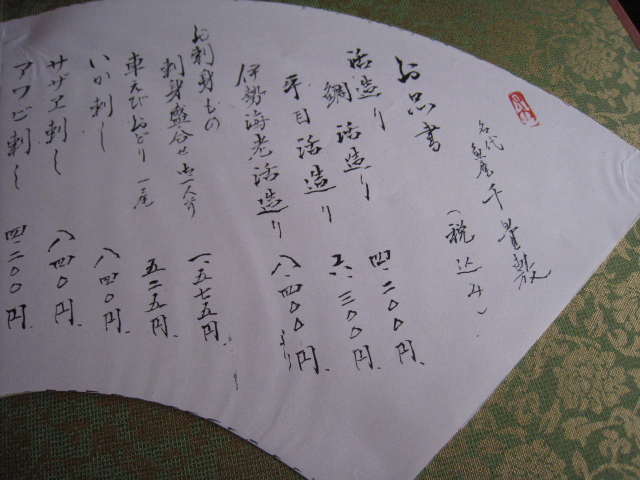 名代
(税込み)
お品書
活造り
鯛 活造り 四・二〇〇円
平目活造り 六・三〇〇円
伊勢海老活造り 八・四〇〇円より
お刺身もの
刺身盛合せ お一人前 一・五七五円
車えびおどり 一尾 五二五円
いか刺し 八四〇円
サザエ刺し 八四〇円
アワビ刺し 四・二〇〇円